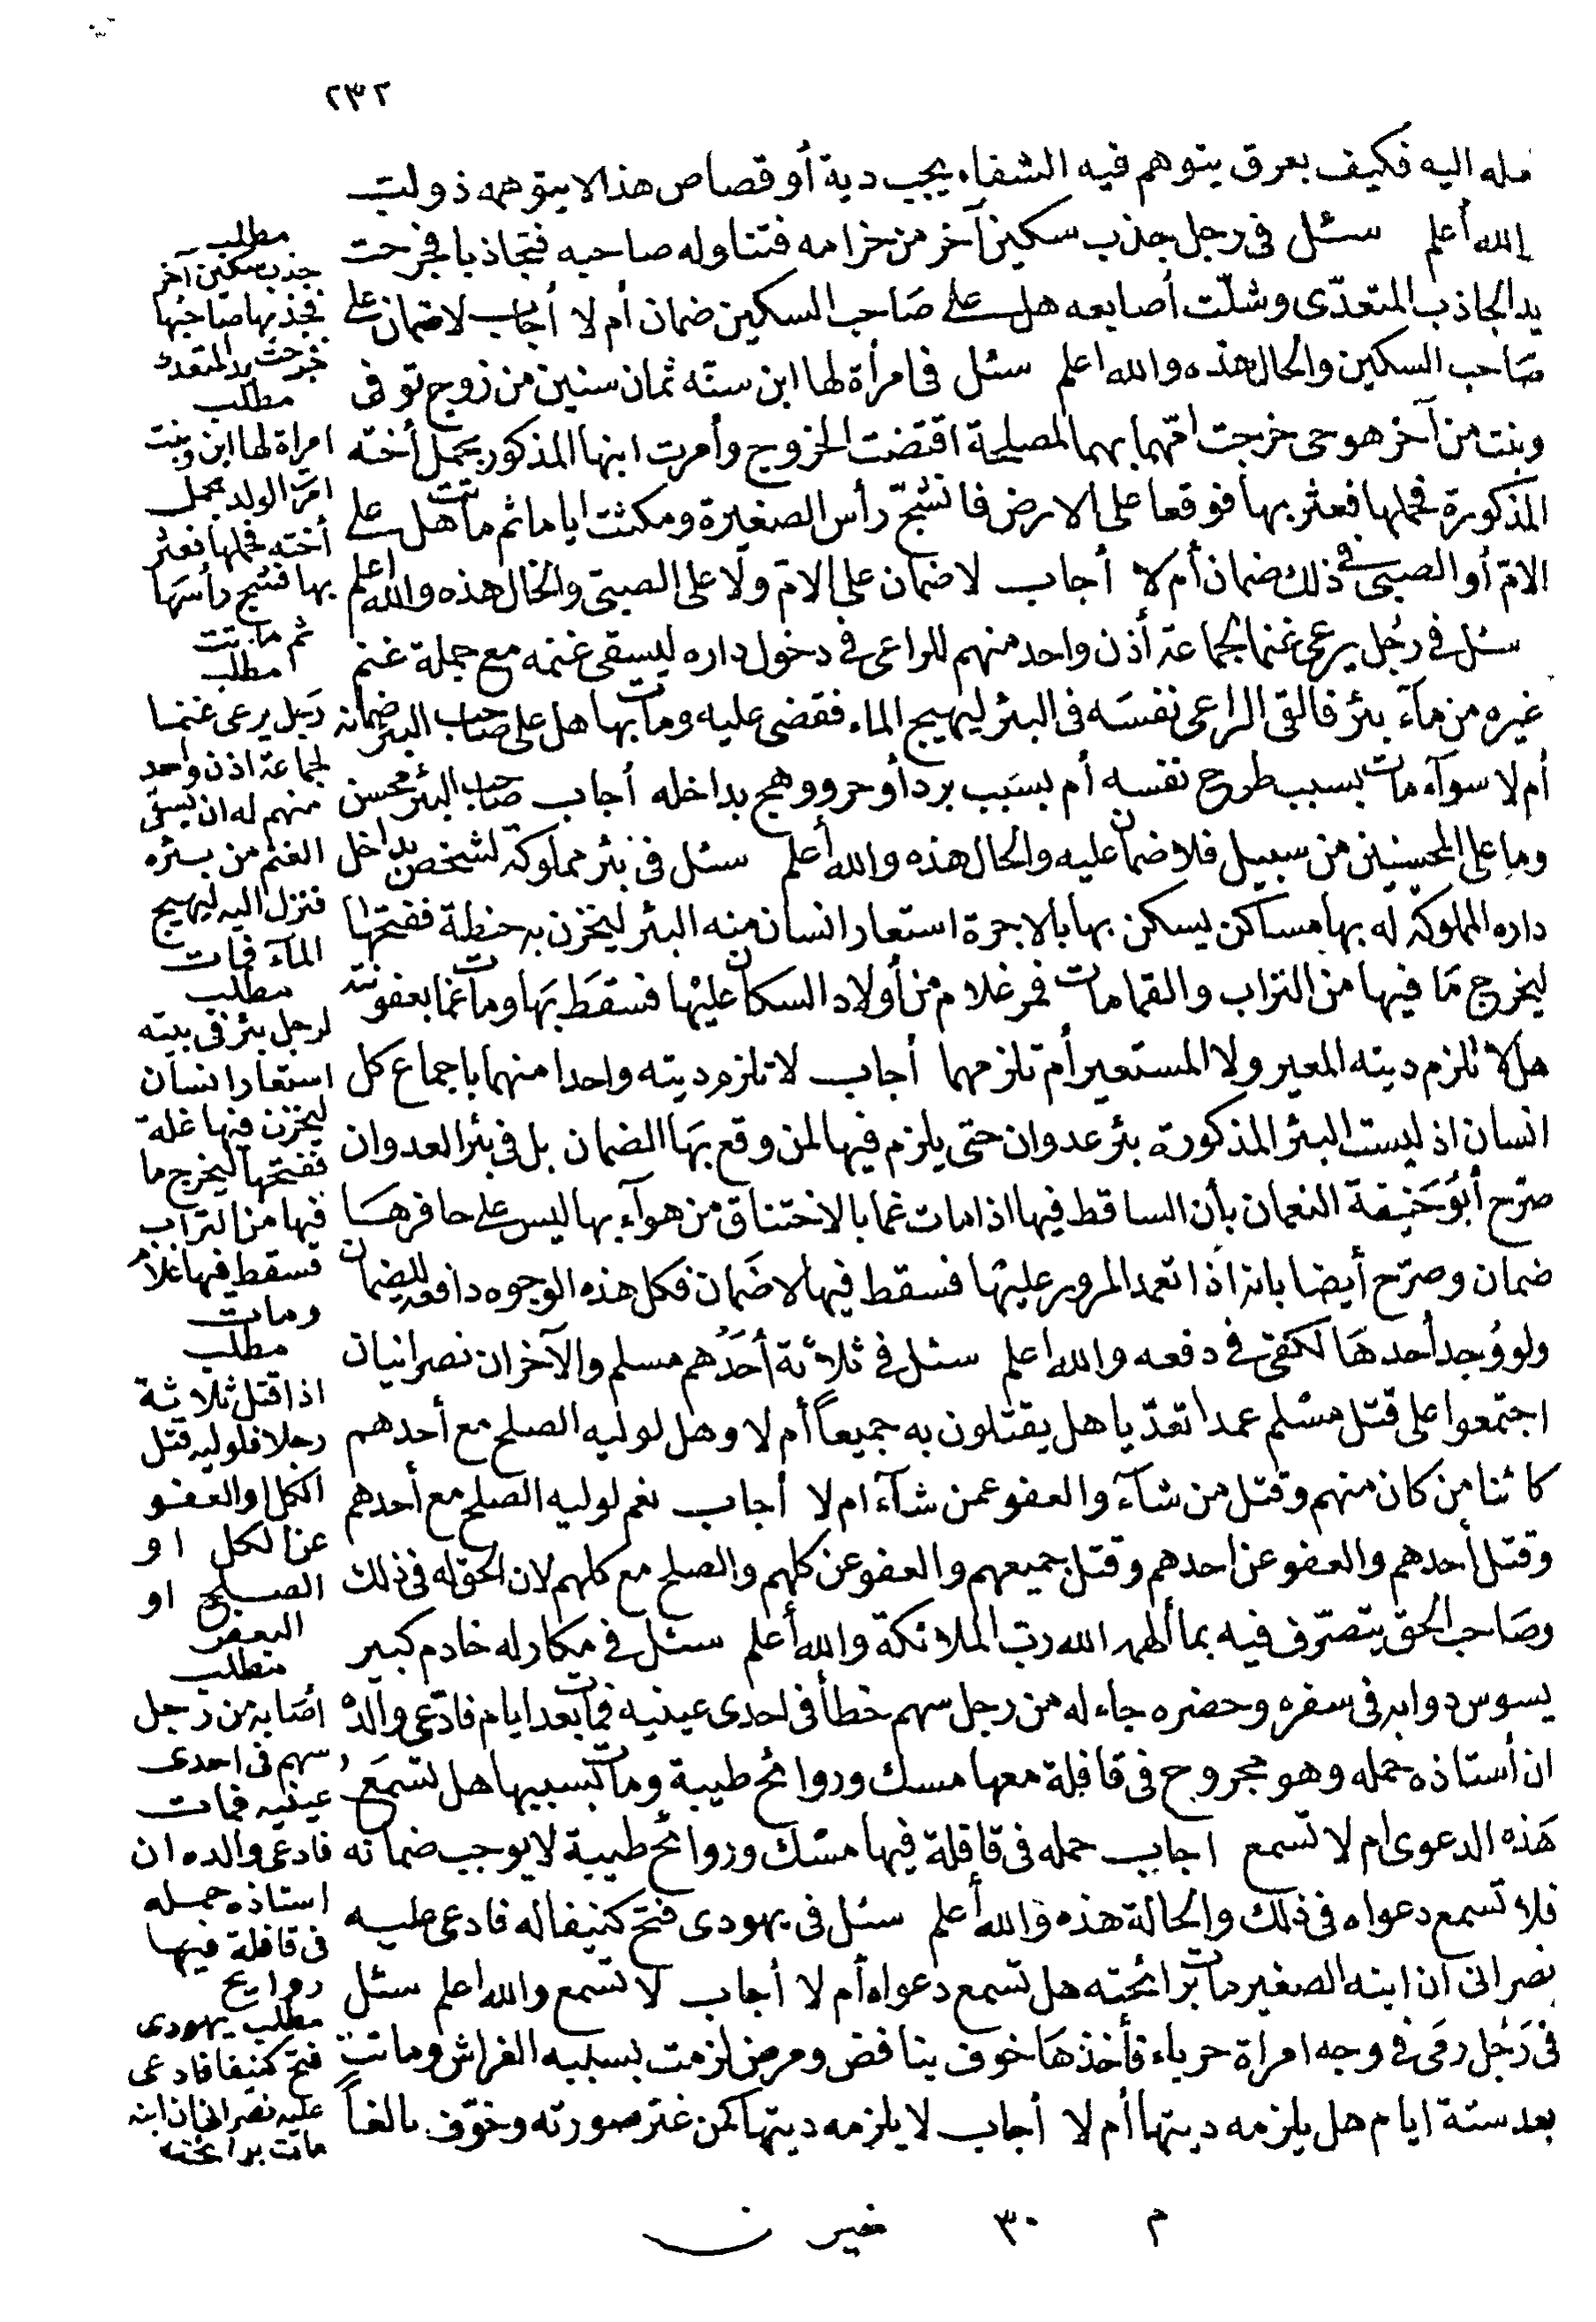 ٢٣٢
مله اليه فكيف بعرق يتوهم فيه الشفاء يجب دية أو قصاص هذا لا يتوهمه ذو لب
والله أعلم سئل فى رجل جذب سكين آخر من خزامه فتناوله صاحبه فتجاذبا فجرحت
يد الجاذب المتعدّى وشلّت أصابعه هل على صَاحب السكين ضمان أم لا أجاب لا ضمان على
صَاحب السكين والحال هذه والله اعلم سئل فى امرأة لها ابن سنّه ثمان سنين من زوج توفى
وبنت من آخر هو حى خرجت امّهما بهما لمصلحة اقتضت الخروج وأمرت ابنها المذكور بحمل أخته
المذكورة فحملها فعثر بها فوقعا على الارض فانشجّ رأس الصغيرة ومكثت اياما ثم ماتت هل على
الامّ أو الصبى فى ذلك ضمان أم لا أجاب لا ضمان على الامّ ولا على الصبىّ والحال هذه والله اعلم
سئل فى رجُل يرعى غنما لجماعة أذن واحد منهم للراعى فى دخول داره ليسقى غنمه مع جملة غنم
غيره من مآء بئر فالقى الراعى نفسَه فى البئر ليهيج الماء فقضى عليه ومات بها هل على صاحب البئر ضمانه
أم لا سوآء مات بسبب طرح نفسه أم بسَبب برد أو حر ووهج بداخله أجاب صاحب البئر محسن
وما على المحسنين من سبيل فلا ضمان عليه والحال هذه والله أعلم سئل فى بئر مملوكة لشخص بداخل
داره المملوكة له بها مساكن يسكن بها بالاجرة استعار انسان منه البئر ليخزن به حنطة ففتحها
ليخرج مَا فيها من التراب والقمامات فمر غلام من أولاد السكان عليْها فسقطَ بَها ومات غما بعفونته
هل لا تلزم ديته المعير ولا المستعير أم تلزمهما أجاب لا تلزم ديته واحدا منهما باجماع كل
انسان اذ ليست البئر المذكورة بئر عدوان حتى يلزم فيها لمن وقع بهَا الضمان بل فى بئر العدوان
صرّح أبوُ حَنيفة النعمان بأن الساقط فيها اذا مات غما بالاختناق من هوآء بها ليس على حافرهَا
ضمان وصرّح أيضا بانه اذا تعمد المرور عليهَا فسقط فيها لا ضَمان فكل هذه الوجوه دافعة للضمان
ولو وُجد أحدهَا لكفى فى دفعه والله اعلم سئل فى ثلاثة أحَدُهم مسلم والآخران نصرانيان
اجتمعوا على قتل مسْلم عمدا تعدّيا هل يقتلون به جميعاً أم لا وهل لوليه الصلح مع أحدهم
كائنا من كان منهم وقتل من شآء والعفو عمن شآء ام لا أجاب نعم لوليه الصلح مع أحدهم
وقتل أحدهم والعفو عن احدهم وقتل جميعهم والعفو عن كلهم والصلح مع كلهم لان الحق له فى ذلك
وصَاحب الحق يتصّرف فيه بما ألهمه الله ربّ الملائكة والله أعلم سئل فى مكار له خادم كبير
يسوس دوابه فى سفره وحضره جاء له من رجل سهم خطأ فى احدى عينيه فمات بعد ايام فادّعى والدهُ
ان أستاذه حمله وهو مجروح فى قافلة معها مسك وروائح طيبة ومات بسببها هل تسمَعُ
هَذه الدعوى ام لا تسمع اجاب حمله فى قافلة فيها مسْك وروائح طيبة لا يوجب ضمانه
فلا تسمع دعواه فى ذلك والحالة هذه والله أعلم سئل فى يهودى فتح كنيفا له فادعى عليه
نصرانى ان ابنه الصغير مات برائحته هل تسمع دعواه أم لا أجاب لا تسمع والله اعلم سئل
فى رَجُل رمَى فى وجه امراة حرباء فأخذهَا خوف بنافض ومرض لزمت بسببه الفراش وماتت
بعد ستة ايام هل يلزمه ديتها أم لا أجاب لا يلزمه ديتها كمن غيّر صورته وخوّف بالغاً
مطلب
جذب سكين آخر
فجذبها صَاحبُها
فجرحت يد المتعدى
مطلب
امراة لها ابن وبنت
امرت الولد بحمل
أخته فحملها فعثر
بها فشج رأسَها
ثم ماتت
مطلب
رَجل يرعى غنما
لجماعة اذن واحد
منهم له ان يسقى
الغنم من بئره
فنزل اليه ليهيج
المآء فمات
مطلب
لرجل بئر فى بيته
استعار انسان
ليخزن فيها غلة
ففتحها ليخرج ما
فيها من التراب
فسقط فيها غلامُ
ومات
مطلب
اذا قتل ثلاثة
رجلا فلوليه قتل
الكل او العفو
عن الكل او
الصلح او
البعض
مطلب
أصَابه من رجل
سهم فى احدى
عينيه فمات
فادعى والده ان
استاذه حمله
فى قافلة فيها
روايح
مطلب يهودى
فتح كنيفا فادعى
عليه نصرانى ان ابنه
مات برائحته
م ٣٠ خيرى ن